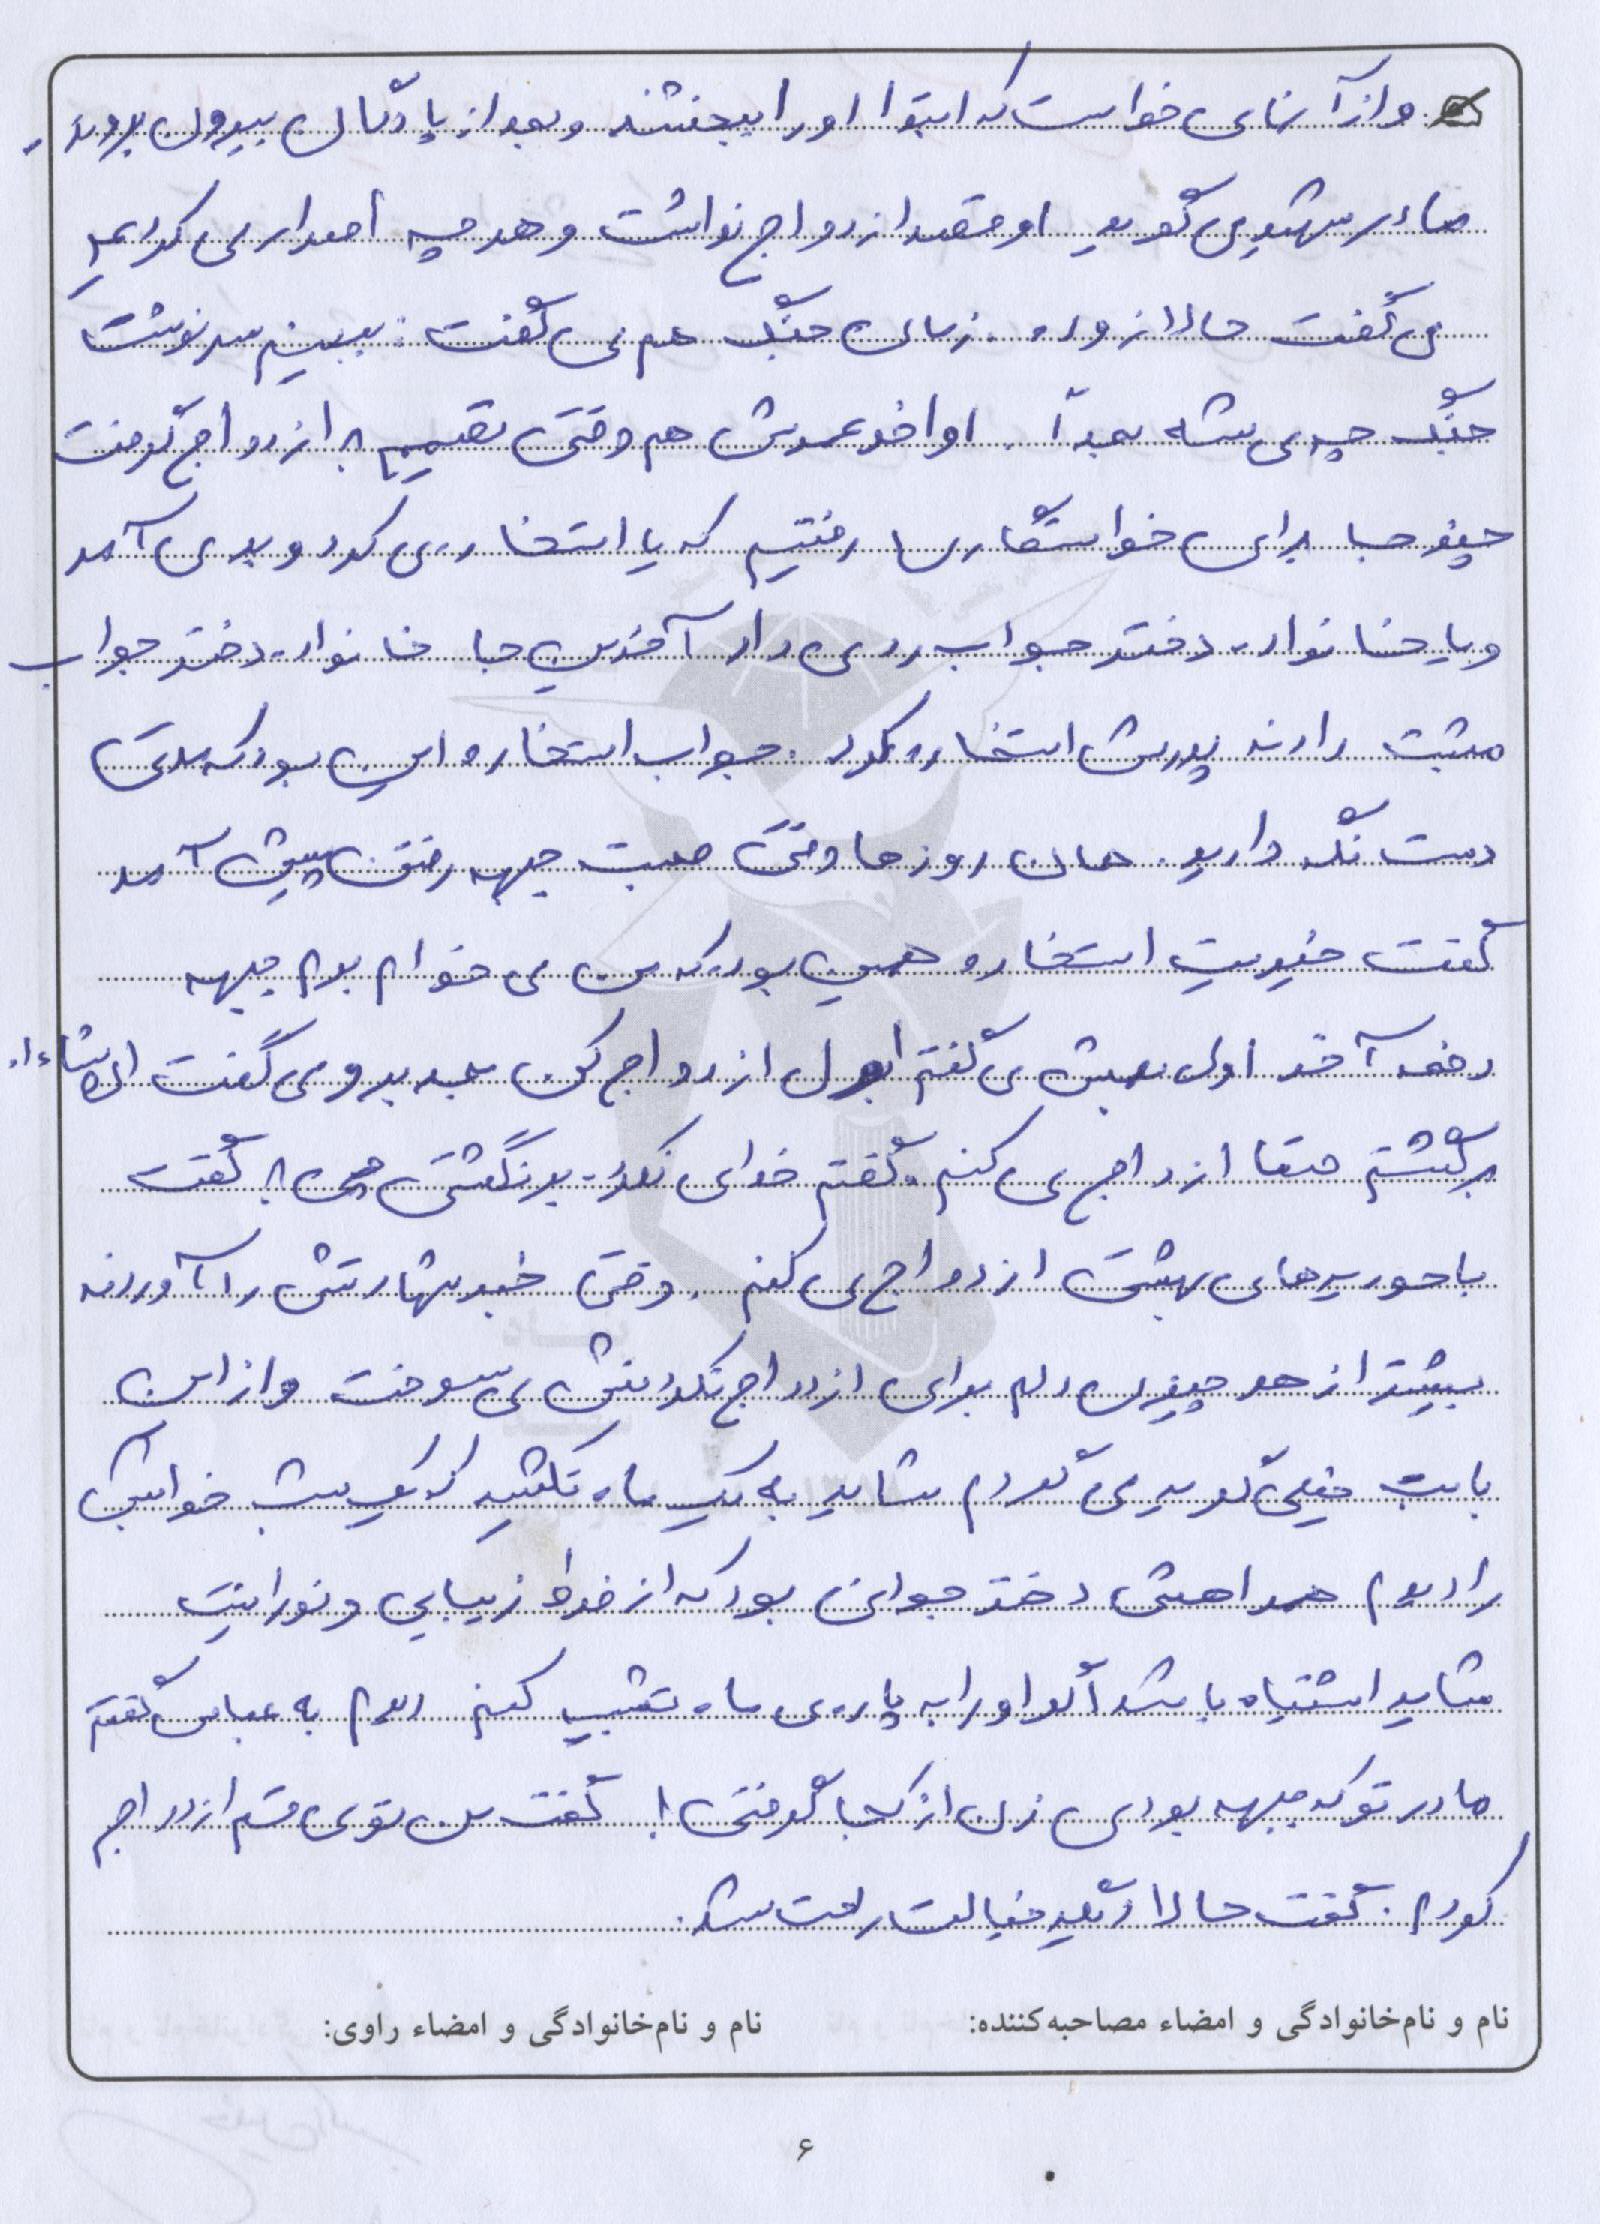 و از آنهای خواست که ابتدا او را ببخشند و بعد از پادگان بیرون بروند.
مادر شهید می گوید او قصد ازدواج نداشت و هر چه اصرار می کردیم
می گفت حالا زوده. زمان جنگ هم می گفت: ببینیم سرنوشت
جنگ چه می شه بعداً. اواخر عمرش هم وقتی تصمیم به ازدواج گرفت
چند جا برای خواستگاری رفتیم که یا استخاره می کرد و بد می آمد
و یا خانواده دختر جواب رد می داد آخرین جا خانواده دختر جواب
مثبت دادند پدرش استخاره کرد. جواب استخاره این بود که مدتی
دست نگه دارید. همان روزها وقتی صحبت جبهه رفتن پیش آمد
گفت خیریت استخاره همین بود که من می خوام برم جبهه
دفعه آخر اولی بهش می گفتم اول ازدواج کن بعد برو می گفت ان شاءا..
برگشتم حتما ازدواج می کنم. گفتم خدای نکرده برنگشتی چی؟ گفت
با حوریه های بهشتی ازدواج می کنم. وقتی خبر شهادتش را آوردند
بیشتر از هر چیزی دلم برای ازدواج نکردنش می سوخت و از این
بابت خیلی گریه می کردم شاید به یک ماه نکشید که یک شب خوابش
را دیدم همراهش دختر جوانی بود که از فرط زیبایی و نورانیت
شاید اشتباه باشد اگر او را به پاره ی ماه تشبیه کنم دیدم به عباس گفتم
مادر تو که جبهه بودی زن از کجا گرفتی! گفت من توی قم ازدواج
کردم. گفت حالا دیگه خیالت راحت شد.
نام و نام خانوادگی و امضاء مصاحبه کننده: نام و نام خانوادگی و امضاء راوی:
۶